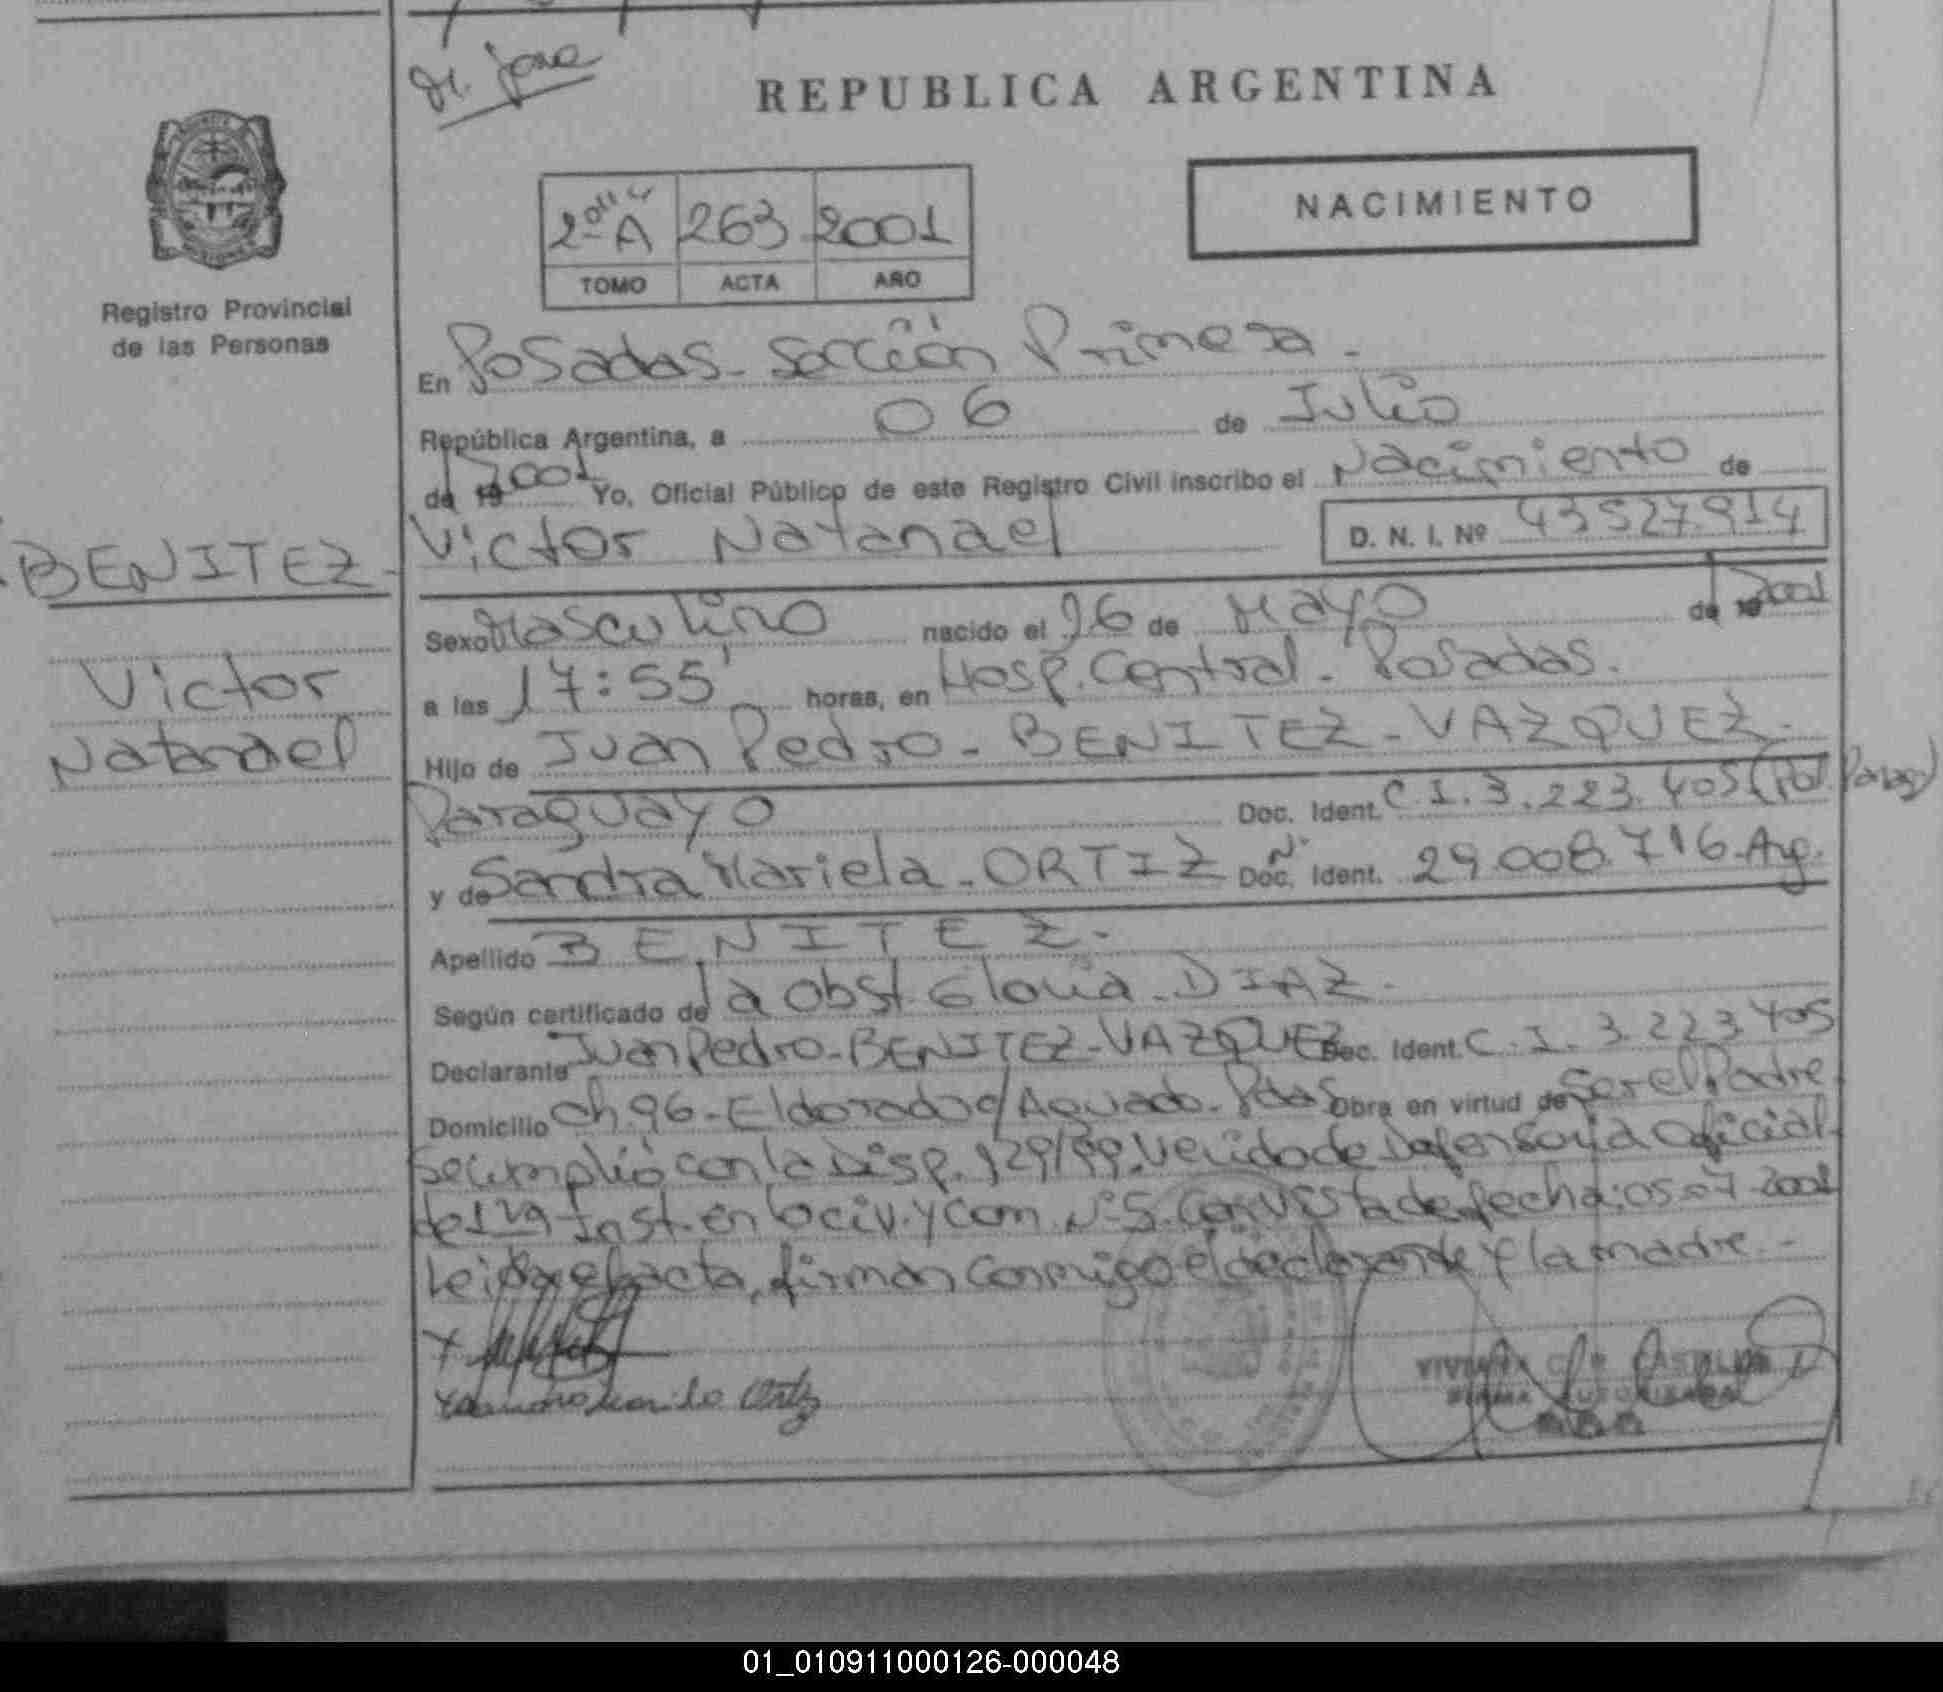 REPUBLICA ARGENTINA
NACIMIENTO
2º A 263 2001
TOMO ACTA AÑO
Registro Provincial
de las Personas
En Posadas - Sección Primera -
República Argentina, a 06 de Julio
de 19 2001 Yo, Oficial Público de este Registro Civil inscribo el Nacimiento de
Victor Natanael D. N. I. Nº 43527914
BENITEZ -
Victor
Natanael
Sexo Masculino nacido el 26 de Mayo de 19 2001
a las 17:55' horas, en Hosp. Central - Posadas.
Hijo de Juan Pedro - BENITEZ - VAZQUEZ -
Paraguayo Doc. Ident. C.I. 3.223.405 (Pol. Parag)
y de Sandra Mariela - ORTIZ Doc. Nº Ident. 29.008.716 - Arg.
Apellido BENITEZ -
Según certificado de la Obst. Gloria - DIAZ -
Declarante Juan Pedro - BENITEZ - VAZQUEZ Doc. Ident. C.I. 3.223.405
Domicilio Ch. 96 - Eldorado e/ Aguado - Pdas Obra en virtud de Ser el Padre
Se cumplió con la Disp. 129/99. Venido de Defensoría Oficial
de 1ra Inst. en lo civ. y Com. Nº 5. Con vista de fecha: 05-07-2001
Leida el acta, firman conmigo el declarante y la madre. -
01_010911000126-000048